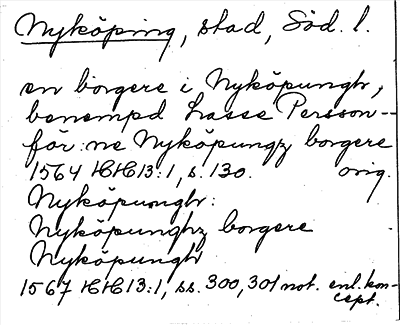 Nyköping, stad, Söd. l.
en borgere i Nyköpungh,
benempd Lasse Persson--
för:ne Nyköpungz borgere
1564 HH 13:1, s. 130. orig.
Nyköpungh:
Nyköpunghz borgere
Nyköpungh
1567 HH 13:1, ss. 300, 301 not. enl. kon-
cept.